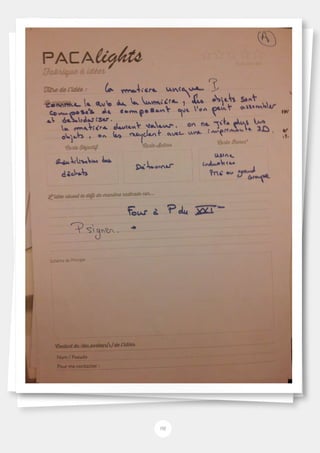 A
PACAlights
Fabrique à idées
Titre de l'idée : la matière unique
comme le Rub de la lumière, des objets sont
composés de composant que l'on peut assembler
et désolidariser.
la matière devient valeur. on ne jette plus les
objets, on les recyclent avec une imprimante 3D.
Carte Objectif Carte Action
Réutilisation des
déchets
Détourner
usine
industrie
grand
groupe
L'idée résout le défi de manière restreinte car...
Four à P du XXI
P signer.
Schéma de Principe
Contact du (des) porteur(s) de l'idée
Nom / Pseudo
Pour me contacter :